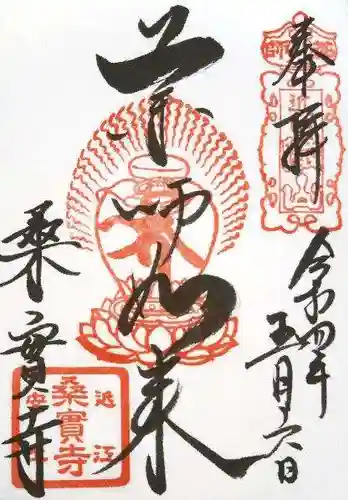 奉拝
令和四年
五月六日
薬師如来
桑實寺
近江
桑實寺
安土